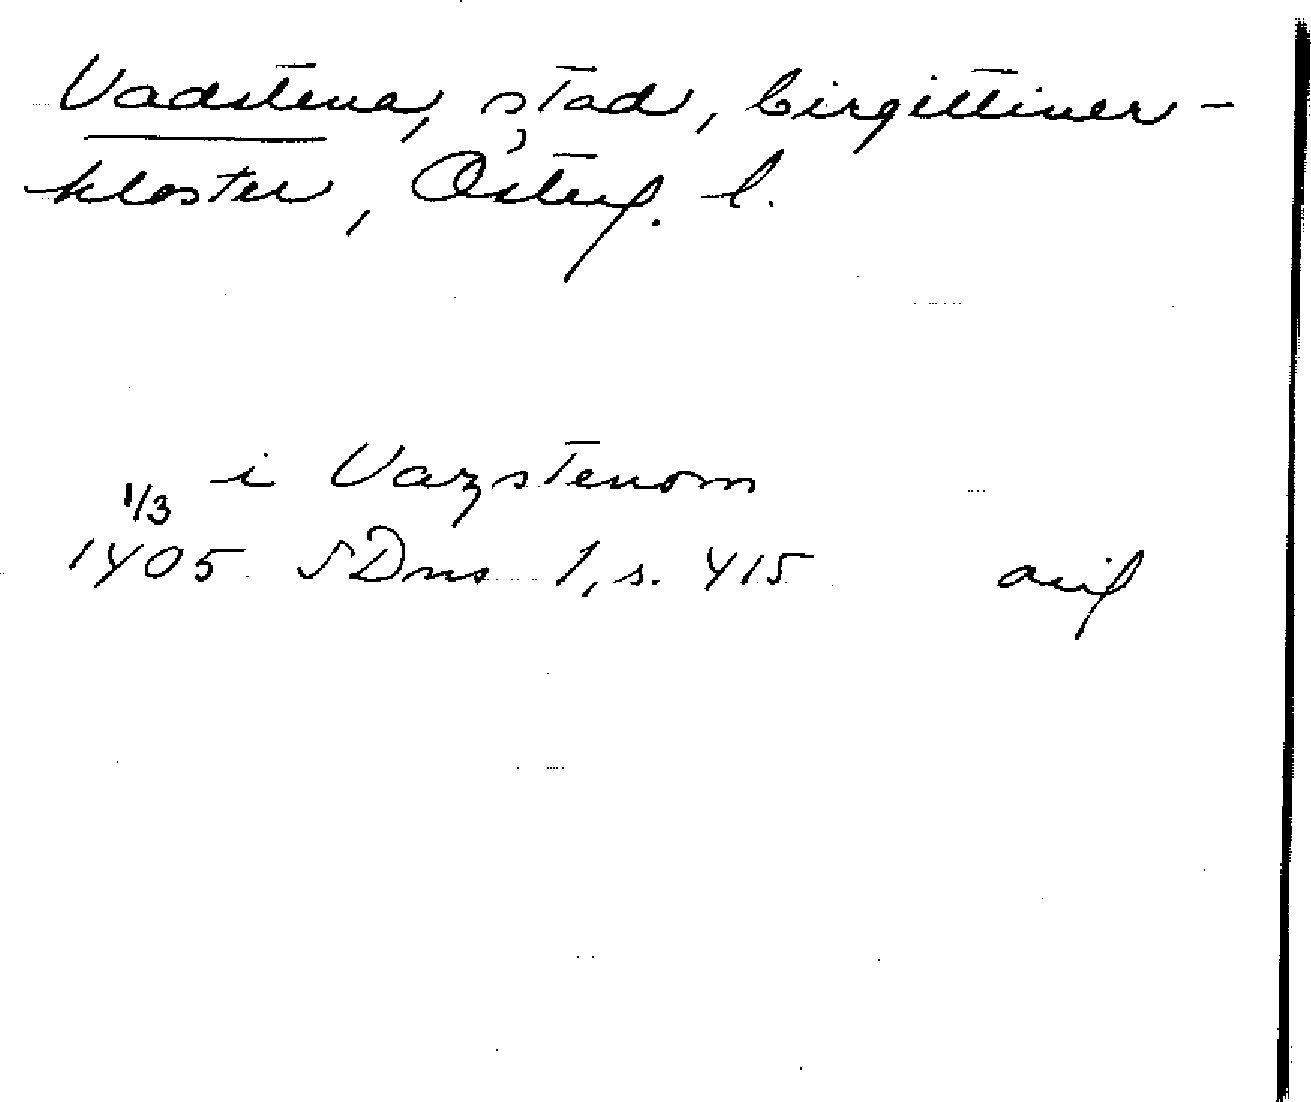 Vadstena, stad, birgittiner-
kloster, Österg. l.
i Vazstenom
1/3
1405 SDns 1, s. 415 avif